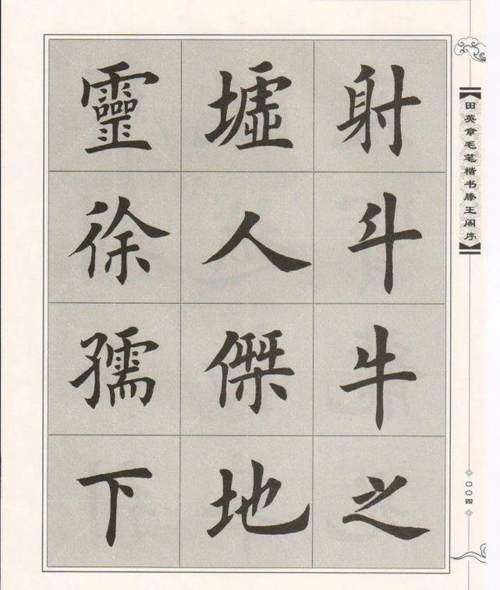 【田英章毛笔楷书滕王阁序】
〇〇四
射斗牛之
墟人傑地
靈徐孺下